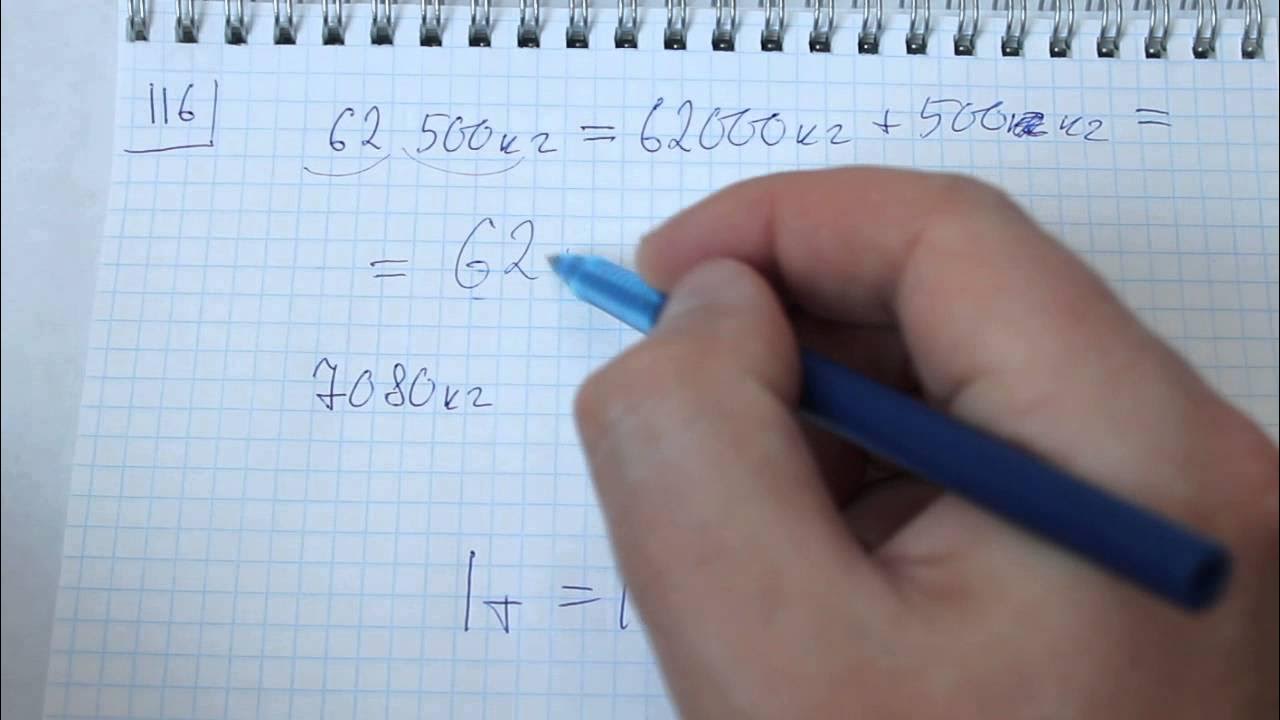 116
62 500кг = 62000кг + 500 кг =
= 62
7080кг
1т =